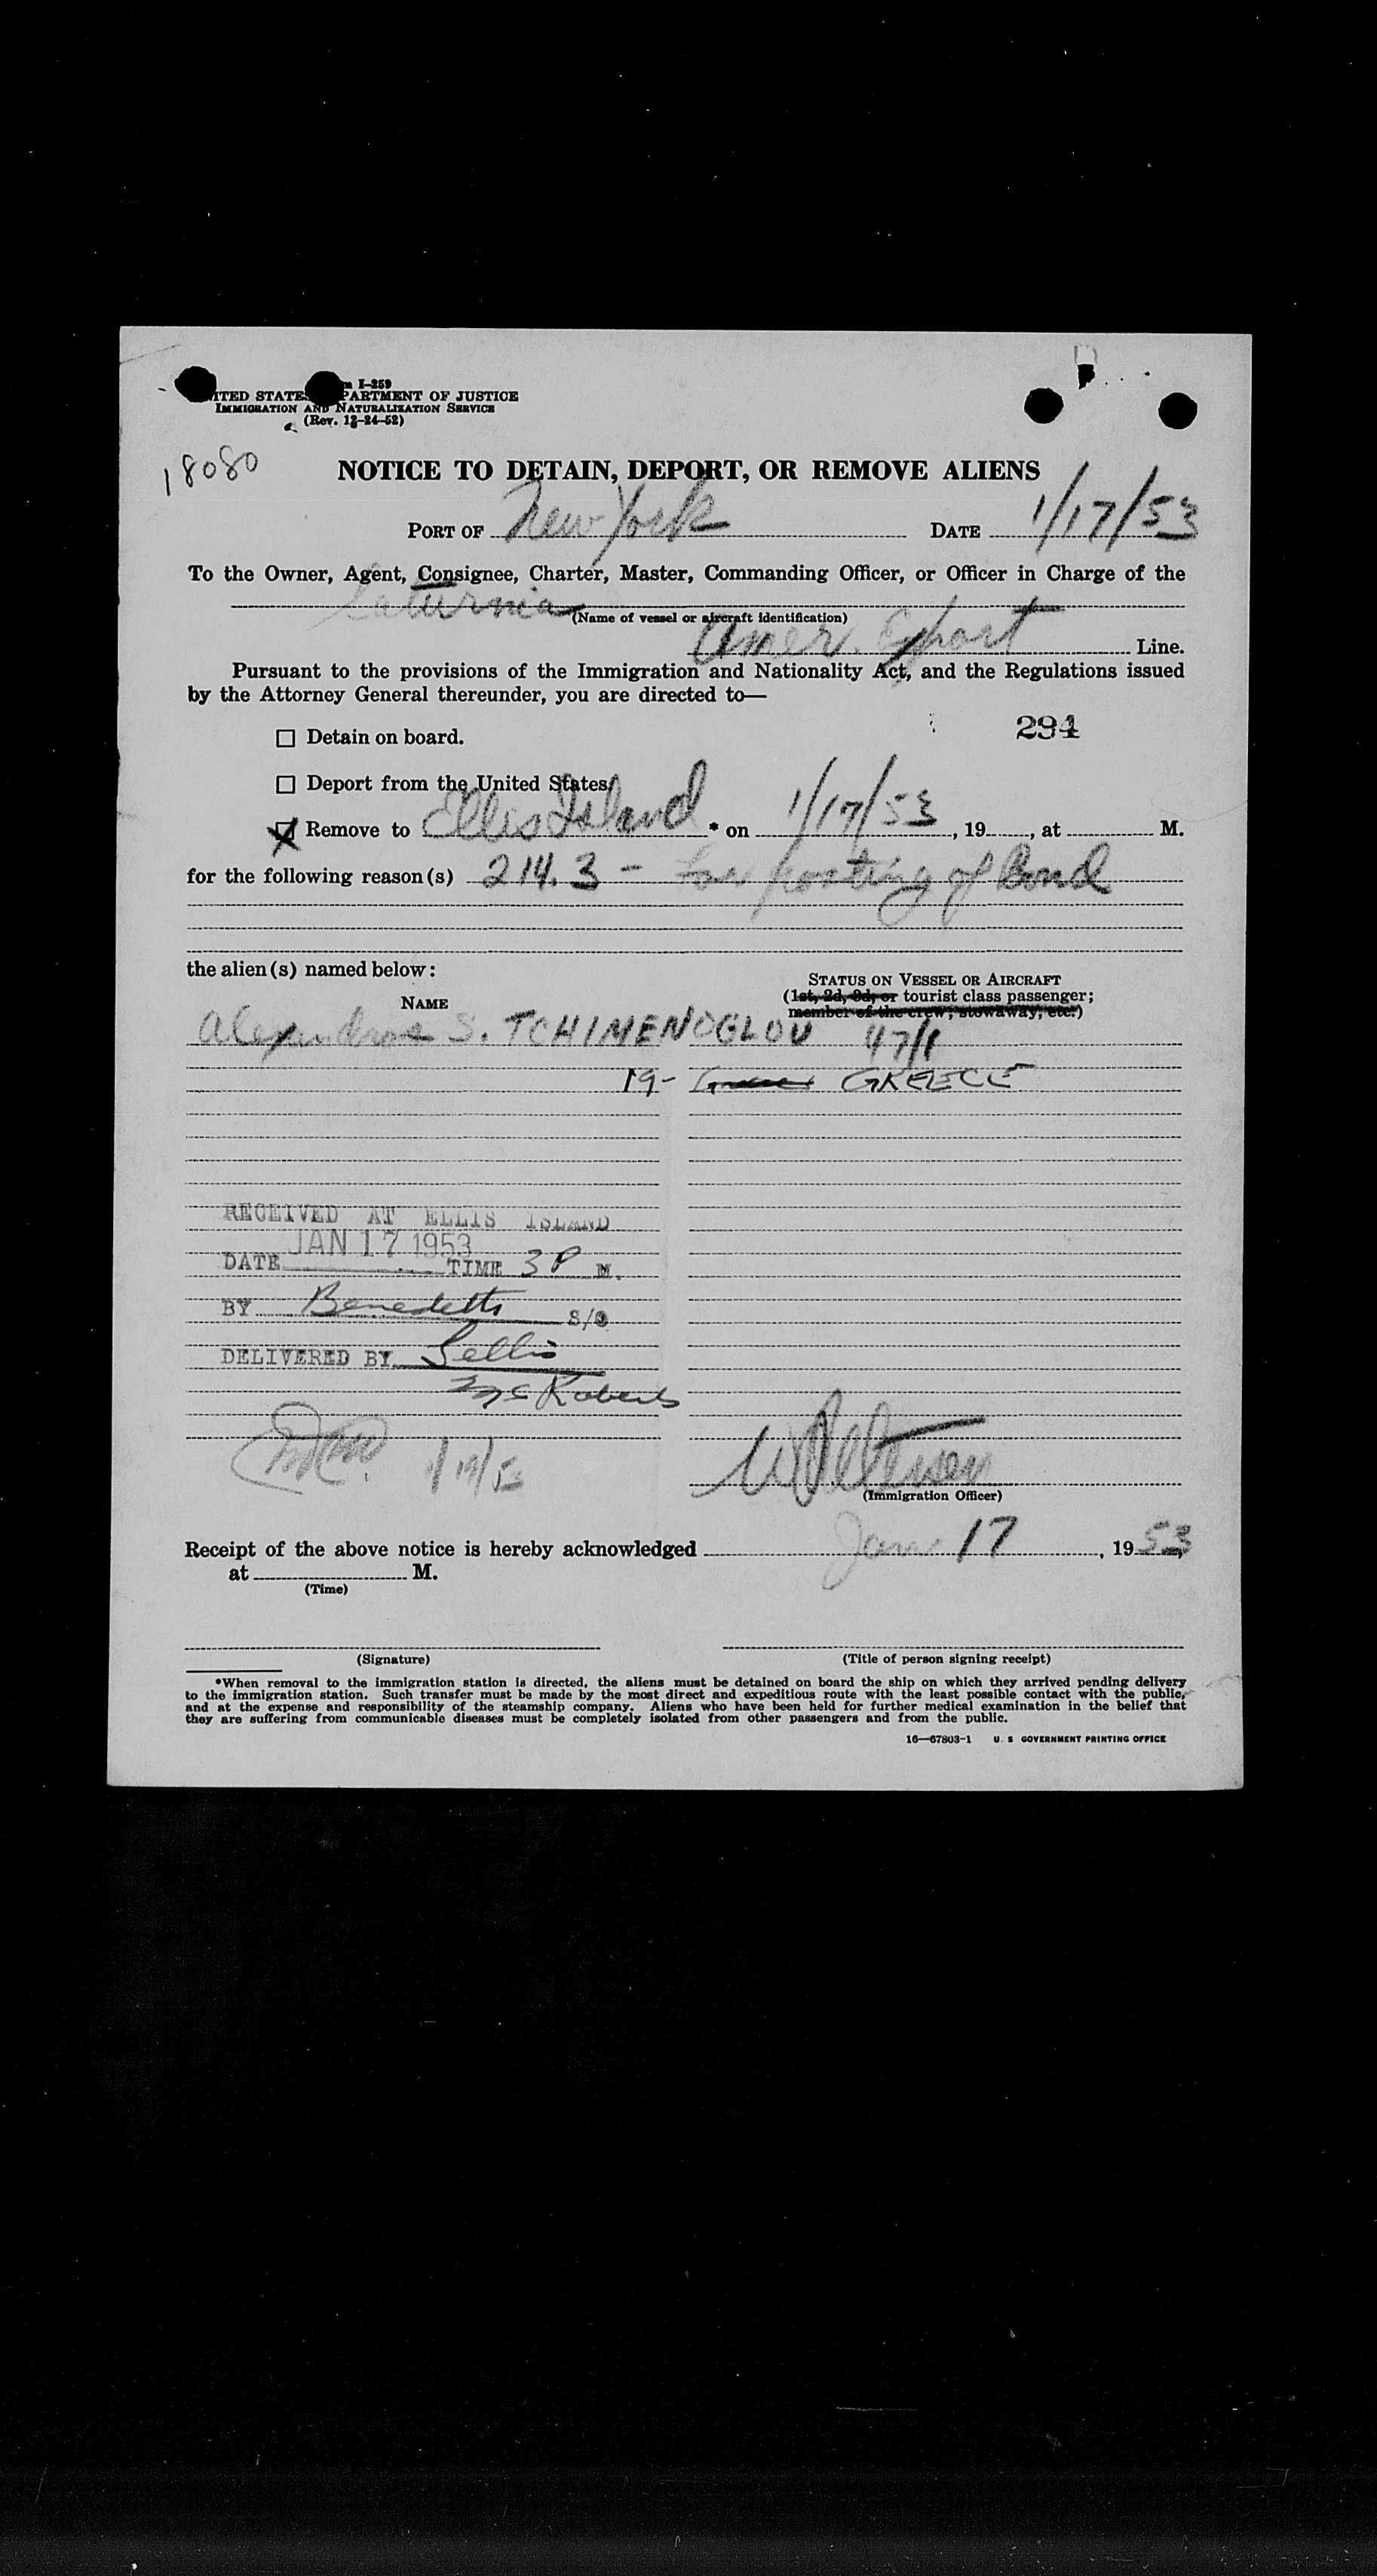 I-259
UNITED STATES DEPARTMENT OF JUSTICE
IMMIGRATION AND NATURALIZATION SERVICE
(Rev. 12-24-52)
18080
NOTICE TO DETAIN, DEPORT, OR REMOVE ALIENS
PORT OF New York DATE 1/17/53
To the Owner, Agent, Consignee, Charter, Master, Commanding Officer, or Officer in Charge of the
Saturnia
(Name of vessel or aircraft identification)
Amer. Export Line.
Pursuant to the provisions of the Immigration and Nationality Act, and the Regulations issued
by the Attorney General thereunder, you are directed to—
294
Detain on board.
Deport from the United States.
Remove to Ellis Island * on 1/17/53, 19, at M.
for the following reason(s) 214.3 - for posting of Bond
the alien(s) named below:
STATUS ON VESSEL OR AIRCRAFT
NAME
(1st, 2d, 3d, or tourist class passenger;
member of the crew; stowaway, etc.)
Alexandros S. TCHIMENOGLOU 47/1
19- GREECE
RECEIVED AT ELLIS ISLAND
JAN 17 1953
DATE TIME 3 P M.
BY Benedetto S/O
DELIVERED BY Sellis
McRoberts
1/19/53
(Immigration Officer)
Receipt of the above notice is hereby acknowledged Jan 17, 1953
at M.
(Time)
(Signature) (Title of person signing receipt)
*When removal to the immigration station is directed, the aliens must be detained on board the ship on which they arrived pending delivery
to the immigration station. Such transfer must be made by the most direct and expeditious route with the least possible contact with the public,
and at the expense and responsibility of the steamship company. Aliens who have been held for further medical examination in the belief that
they are suffering from communicable diseases must be completely isolated from other passengers and from the public.
16—67803-1 U. S. GOVERNMENT PRINTING OFFICE